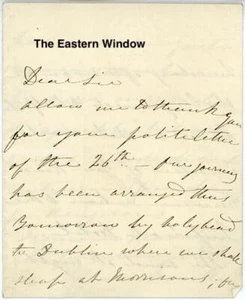 The Eastern Window
Dear Sir
allow me to thank you
for your polite letter
of the 26th – Our journey
has been arranged thus
Tomorrow by Holyhead
to Dublin where we shall
sleep at Morrisons;